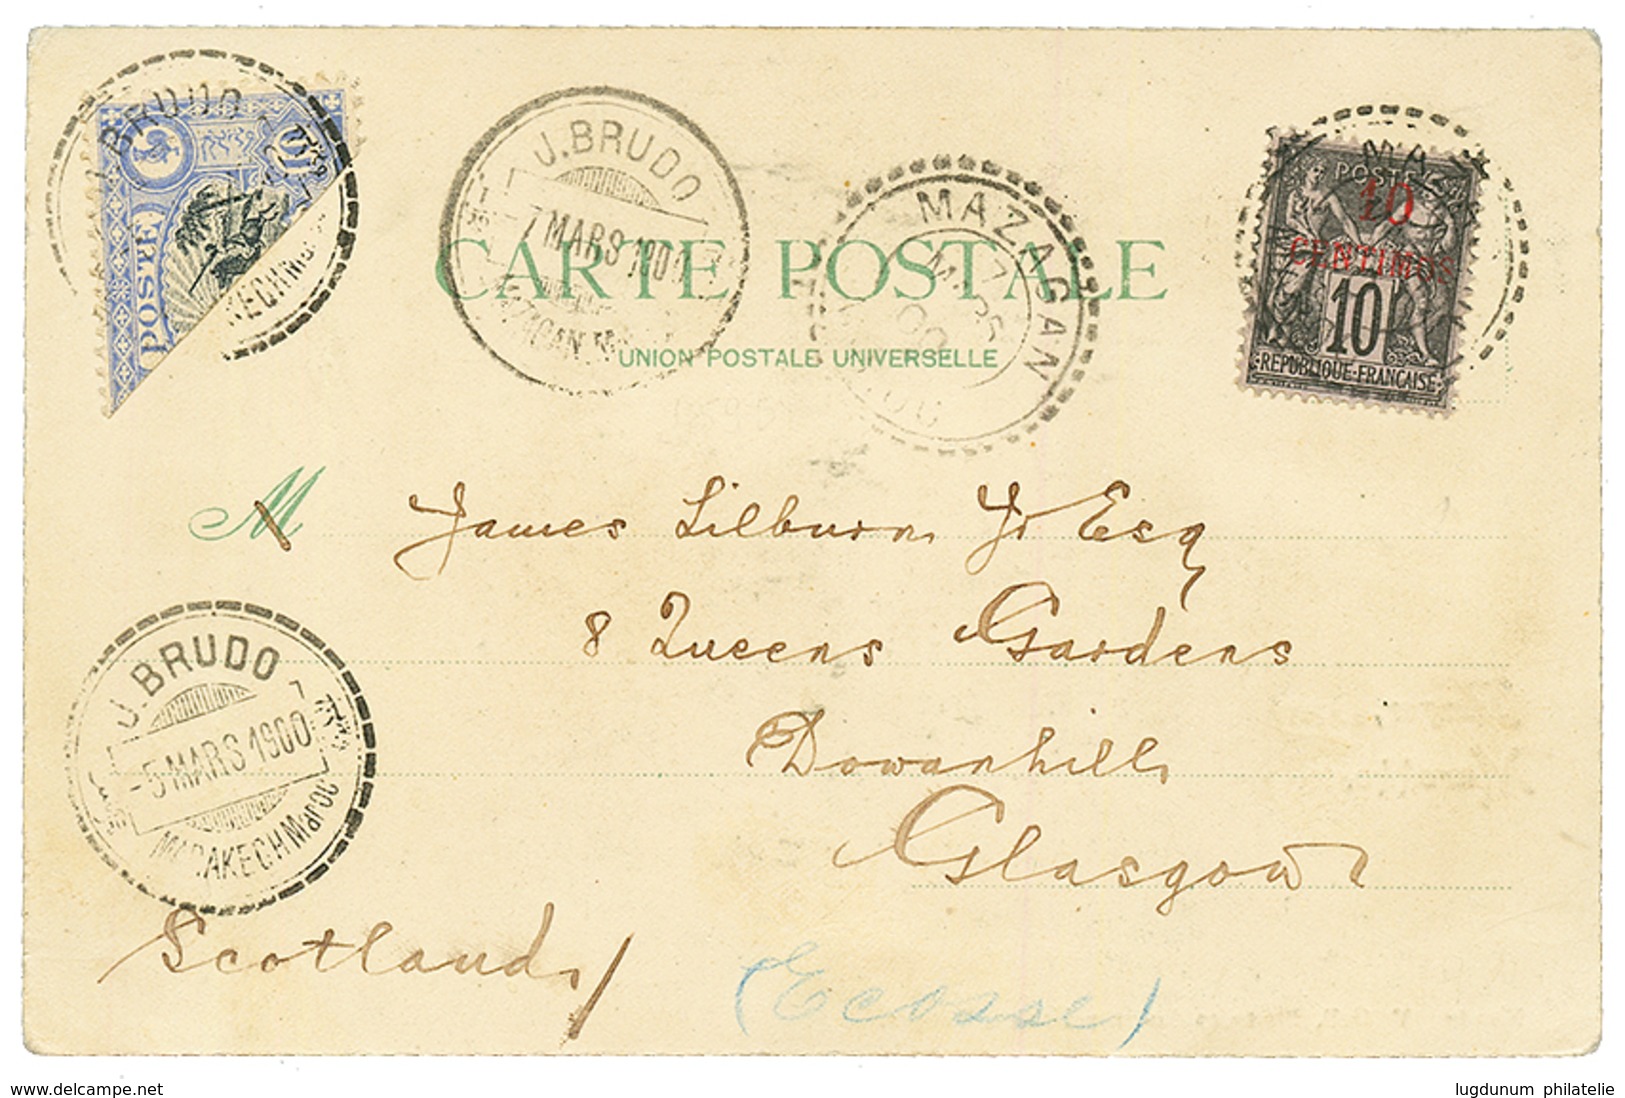 J. BRUDO
POSTE
J. BRUDO
7 MARS 1900
MAZAGAN
MAZAGAN
7
MARS
00
POSTE
10
CENTIMOS
10
REPUBLIQUE-FRANÇAISE
CARTE POSTALE
UNION POSTALE UNIVERSELLE
M
James Lilburn Jr Esq
8 Queens Gardens
Dowanhill
Glasgow
J. BRUDO
-5 MARS 1900
MARAKECH Maroc
Scotland
(Ecosse)
www.delcampe.net
lugdunum philatelie